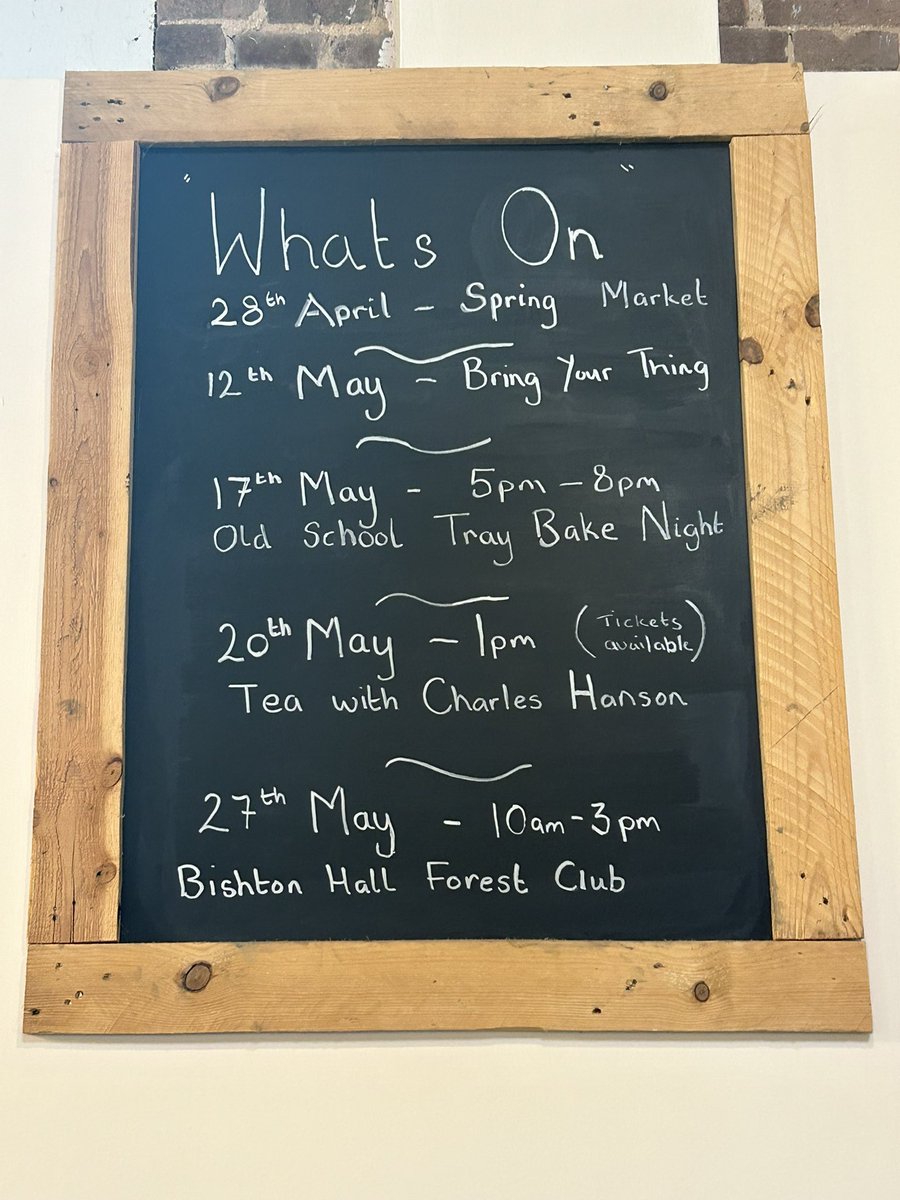 Whats On
28th April - Spring Market
12th May - Bring Your Thing
17th May - 5pm - 8pm
Old School Tray Bake Night
20th May - 1pm (Tickets available)
Tea with Charles Hanson
27th May - 10am-3pm
Bishton Hall Forest Club